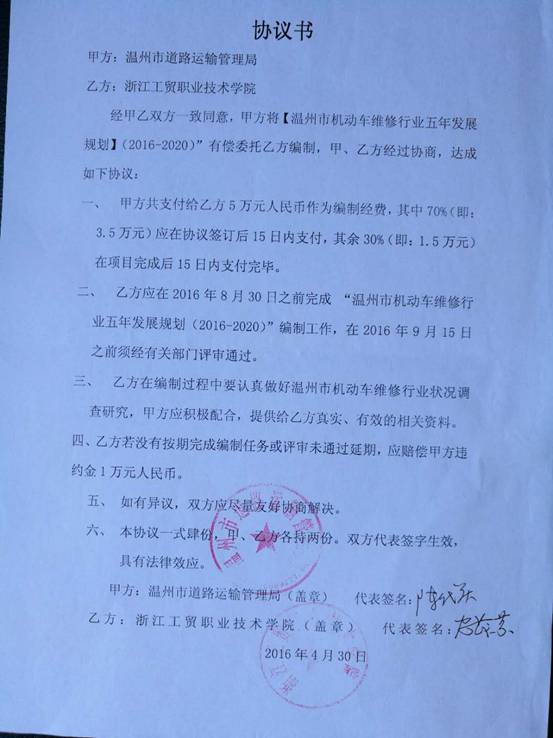 协议书
甲方：温州市道路运输管理局
乙方：浙江工贸职业技术学院
经甲乙双方一致同意，甲方将【温州市机动车维修行业五年发展
规划】（2016-2020）”有偿委托乙方编制，甲、乙方经过协商，达成
如下协议：
一、 甲方共支付给乙方5万元人民币作为编制经费，其中70%（即：
3.5万元）应在协议签订后15日内支付，其余30%（即：1.5万元）
在项目完成后15日内支付完毕。
二、 乙方应在2016年8月30日之前完成 “温州市机动车维修行
业五年发展规划（2016-2020）”编制工作，在2016年9月15日
之前须经有关部门评审通过。
三、 乙方在编制过程中要认真做好温州市机动车维修行业状况调
查研究，甲方应积极配合，提供给乙方真实、有效的相关资料。
四、乙方若没有按期完成编制任务或评审未通过延期，应赔偿甲方违
约金1万元人民币。
五、 如有异议，双方应尽量友好协商解决。
六、 本协议一式肆份，甲、乙方各持两份。双方代表签字生效，
具有法律效应。
甲方：温州市道路运输管理局（盖章） 代表签名：
乙方：浙江工贸职业技术学院（盖章） 代表签名：
2016年4月30日